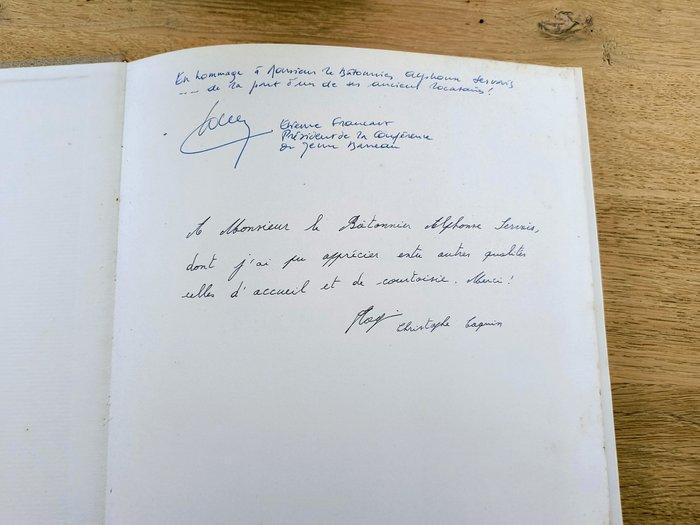 En hommage à Monsieur le Bâtonnier Alphonse Servais
.... de la part d'un de ses anciens locataires!
Etienne Francart
Président de la Conférence
du Jeune Barreau
A Monsieur le Bâtonnier Alphonse Servais,
dont j'ai pu apprécier entre autres qualités
celles d'accueil et de courtoisie. Merci!
Christophe